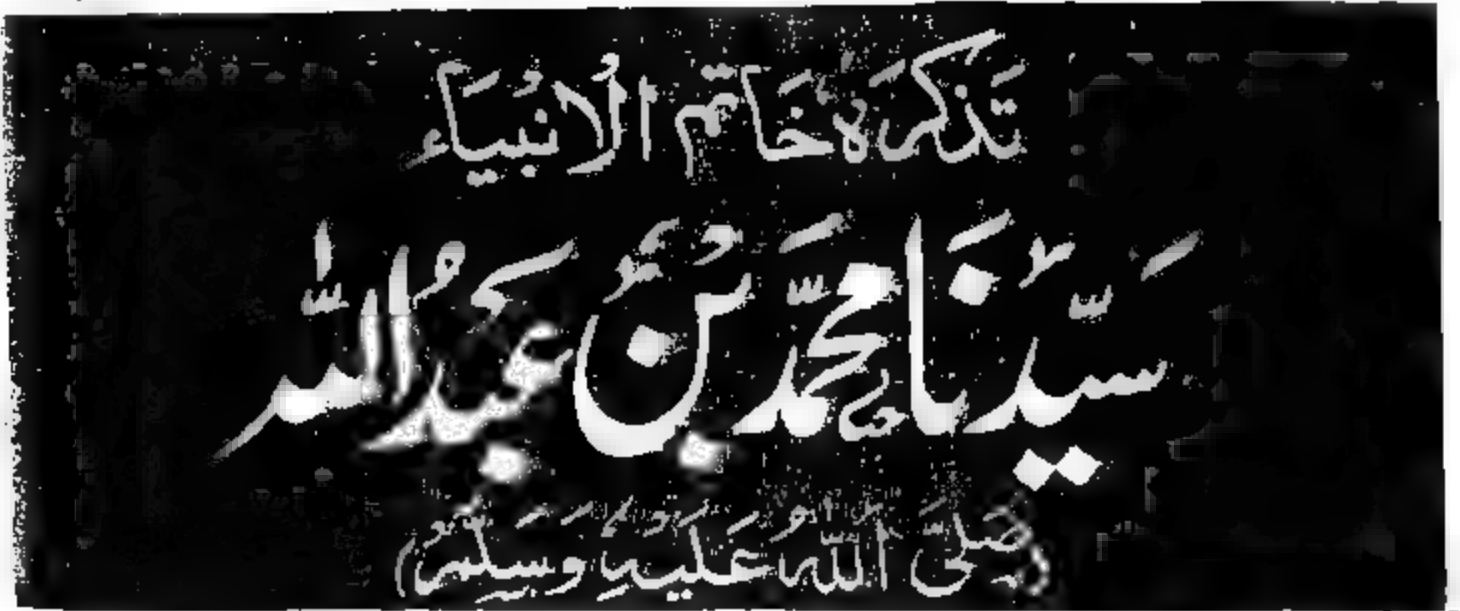 تَذكرَہ خَاتم الانبیَاء
سَیِّدنَا محمَّد بُن عَبدُ اللہ
(صَلَّی اللہُ عَلَیہِ وَسَلَّم)